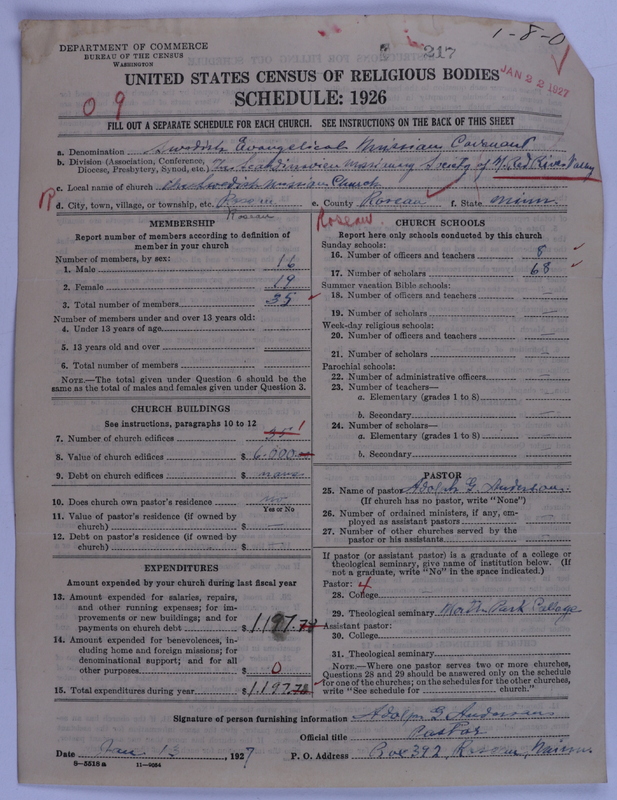 1-8-0
217
JAN 22 1927
DEPARTMENT OF COMMERCE
BUREAU OF THE CENSUS
WASHINGTON
UNITED STATES CENSUS OF RELIGIOUS BODIES
SCHEDULE: 1926
09
FILL OUT A SEPARATE SCHEDULE FOR EACH CHURCH. SEE INSTRUCTIONS ON THE BACK OF THIS SHEET
a. Denomination Swedish Evangelical Mission Covenant
b. Division (Association, Conference, Diocese, Presbytery, Synod, etc.) The Scandinavian Missionary Society of N. Red River Valley
c. Local name of church The Swedish Mission Church
d. City, town, village, or township, etc. Roseau e. County Roseau f. State Minn.
Roseau
Roseau.
MEMBERSHIP
Report number of members according to definition of
member in your church
Number of members, by sex:
1. Male 16
2. Female 19
3. Total number of members 35
Number of members under and over 13 years old:
4. Under 13 years of age
5. 13 years old and over
6. Total number of members
NOTE.—The total given under Question 6 should be the
same as the total of males and females given under Question 3.
CHURCH BUILDINGS
See instructions, paragraphs 10 to 12
7. Number of church edifices 35 1
8. Value of church edifices $ 6.000
9. Debt on church edifices $ none
10. Does church own pastor's residence no
Yes or No
11. Value of pastor's residence (if owned by
church) $ —
12. Debt on pastor's residence (if owned by
church) $ —
EXPENDITURES
Amount expended by your church during last fiscal year
13. Amount expended for salaries, repairs,
and other running expenses; for im-
provements or new buildings; and for
payments on church debt $ 1197.78
14. Amount expended for benevolences, in-
cluding home and foreign missions; for
denominational support; and for all
other purposes $ 0
15. Total expenditures during year $ 1197.78
CHURCH SCHOOLS
Report here only schools conducted by this church
Sunday schools:
16. Number of officers and teachers 8
17. Number of scholars 68
Summer vacation Bible schools:
18. Number of officers and teachers —
19. Number of scholars —
Week-day religious schools:
20. Number of officers and teachers —
21. Number of scholars —
Parochial schools:
22. Number of administrative officers —
23. Number of teachers—
a. Elementary (grades 1 to 8) —
b. Secondary —
24. Number of scholars—
a. Elementary (grades 1 to 8) —
b. Secondary —
PASTOR
25. Name of pastor Adolph G. Anderson.
(If church has no pastor, write "None")
26. Number of ordained ministers, if any, em-
ployed as assistant pastors
27. Number of other churches served by the
pastor or his assistants
If pastor (or assistant pastor) is a graduate of a college or
theological seminary, give name of institution below. (If
not a graduate, write "No" in the space indicated.)
Pastor: 4
28. College
29. Theological seminary North Park College
Assistant pastor:
30. College
31. Theological seminary
NOTE.—Where one pastor serves two or more churches,
Questions 28 and 29 should be answered only on the schedule
for one of the churches; on the schedules for the other churches,
write "See schedule for church."
Signature of person furnishing information Adolph G. Anderson
Official title Pastor
Date Jan 13, 1927 P. O. Address Box 392, Roseau, Minn.
8—5518 a 11—9054